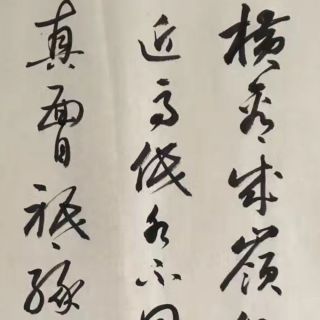 横看成嶺
近高低各不同
真面目祇緣